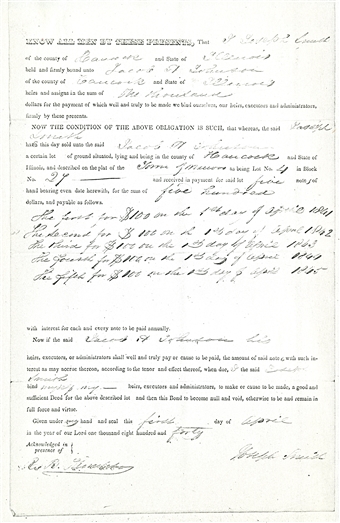 KNOW ALL MEN BY THESE PRESENTS, That I Joseph Smith
of the county of Hancock and State of Illinois
held and firmly bound unto Jacob W Johnson
of the county of Hancock and State of Illinois
heirs and assigns in the sum of One thousand
dollars for the payment of which well and truly to be made we bind ourselves, our heirs, executors and administrators,
firmly by these presents.
NOW THE CONDITION OF THE ABOVE OBLIGATION IS SUCH, that whereas, the said Joseph
Smith
hath this day sold unto the said Jacob W Johnson
a certain lot of ground situated, lying and being in the county of Hancock and State of
Illinois, and described on the plat of the Town of Nauvoo as being Lot No. 4 in Block
No. 27 and received in payment for said lot five notes of
hand bearing even date herewith, for the sum of five hundred
dollars, and payable as follows.
The first for $100 on the 1st day of April 1841
The Second for $100 on the 1st day of April 1842
the third for $100 on the 1st day of April 1843
the fourth for $100 on the 1st day of April 1844
the fifth for $100 on the 1st day of April 1845
with interest for each and every note to be paid annually.
Now if the said Jacob W Johnson his
heirs, executors, or administrators shall well and truly pay or cause to be paid, the amount of said notes with such in-
terest as may accrue thereon, according to the tenor and effect thereof, when due, I the said Joseph
Smith
bind myself my heirs, executors and administrators, to make or cause to be made, a good and
sufficient Deed for the above described lot and then this Bond to become null and void, otherwise to be and remain in
full force and virtue.
Given under my hand and seal this first day of April
in the year of our Lord one thousand eight hundred and forty
Acknowledged in
presence of
Joseph Smith